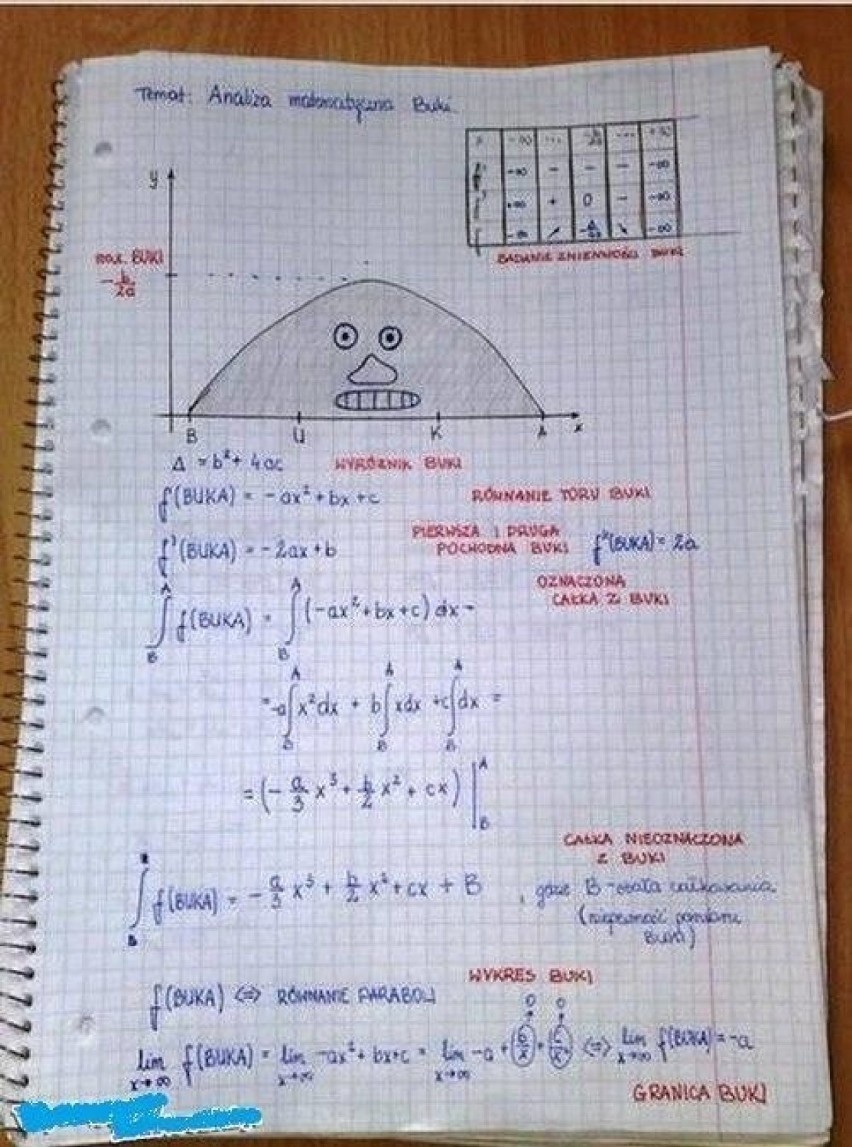 Temat: Analiza matematyczna Buki
x -∞ ... -b/2a ... +∞
f'' -∞ - - - -∞
f' +∞ + 0 - -∞
f -∞ ↗ -Δ/4a ↘ -∞
BADANIE ZMIENNOŚCI BUKI
y
max. BUKI
-b/2a
B U K A x
Δ = b² + 4ac WYRÓŻNIK BUKI
f(BUKA) = -ax² + bx + c RÓWNANIE TORU BUKI
PIERWSZA I DRUGA
f'(BUKA) = -2ax + b POCHODNA BUKI f''(BUKA) = 2a
OZNACZONA
CAŁKA Z BUKI
∫_B^A f(BUKA) = ∫_B^A (-ax² + bx + c) dx =
= -a∫_B^A x²dx + b∫_B^A xdx + c∫_B^A dx =
= (-a/3 x³ + b/2 x² + cx) |_B^A
CAŁKA NIEOZNACZONA
Z BUKI
∫ f(BUKA) = -a/3 x³ + b/2 x² + cx + B , gdzie B - stała całkowania
(niepewność pomiaru
Buki)
WYKRES BUKI
f(BUKA) ⇔ RÓWNANIE PARABOLI
0 0
lim x→∞ f(BUKA) = lim x→∞ -ax² + bx + c = lim x→∞ -a + b/x + c/x² ⇔ lim x→∞ f(BUKA) = -a
GRANICA BUKI